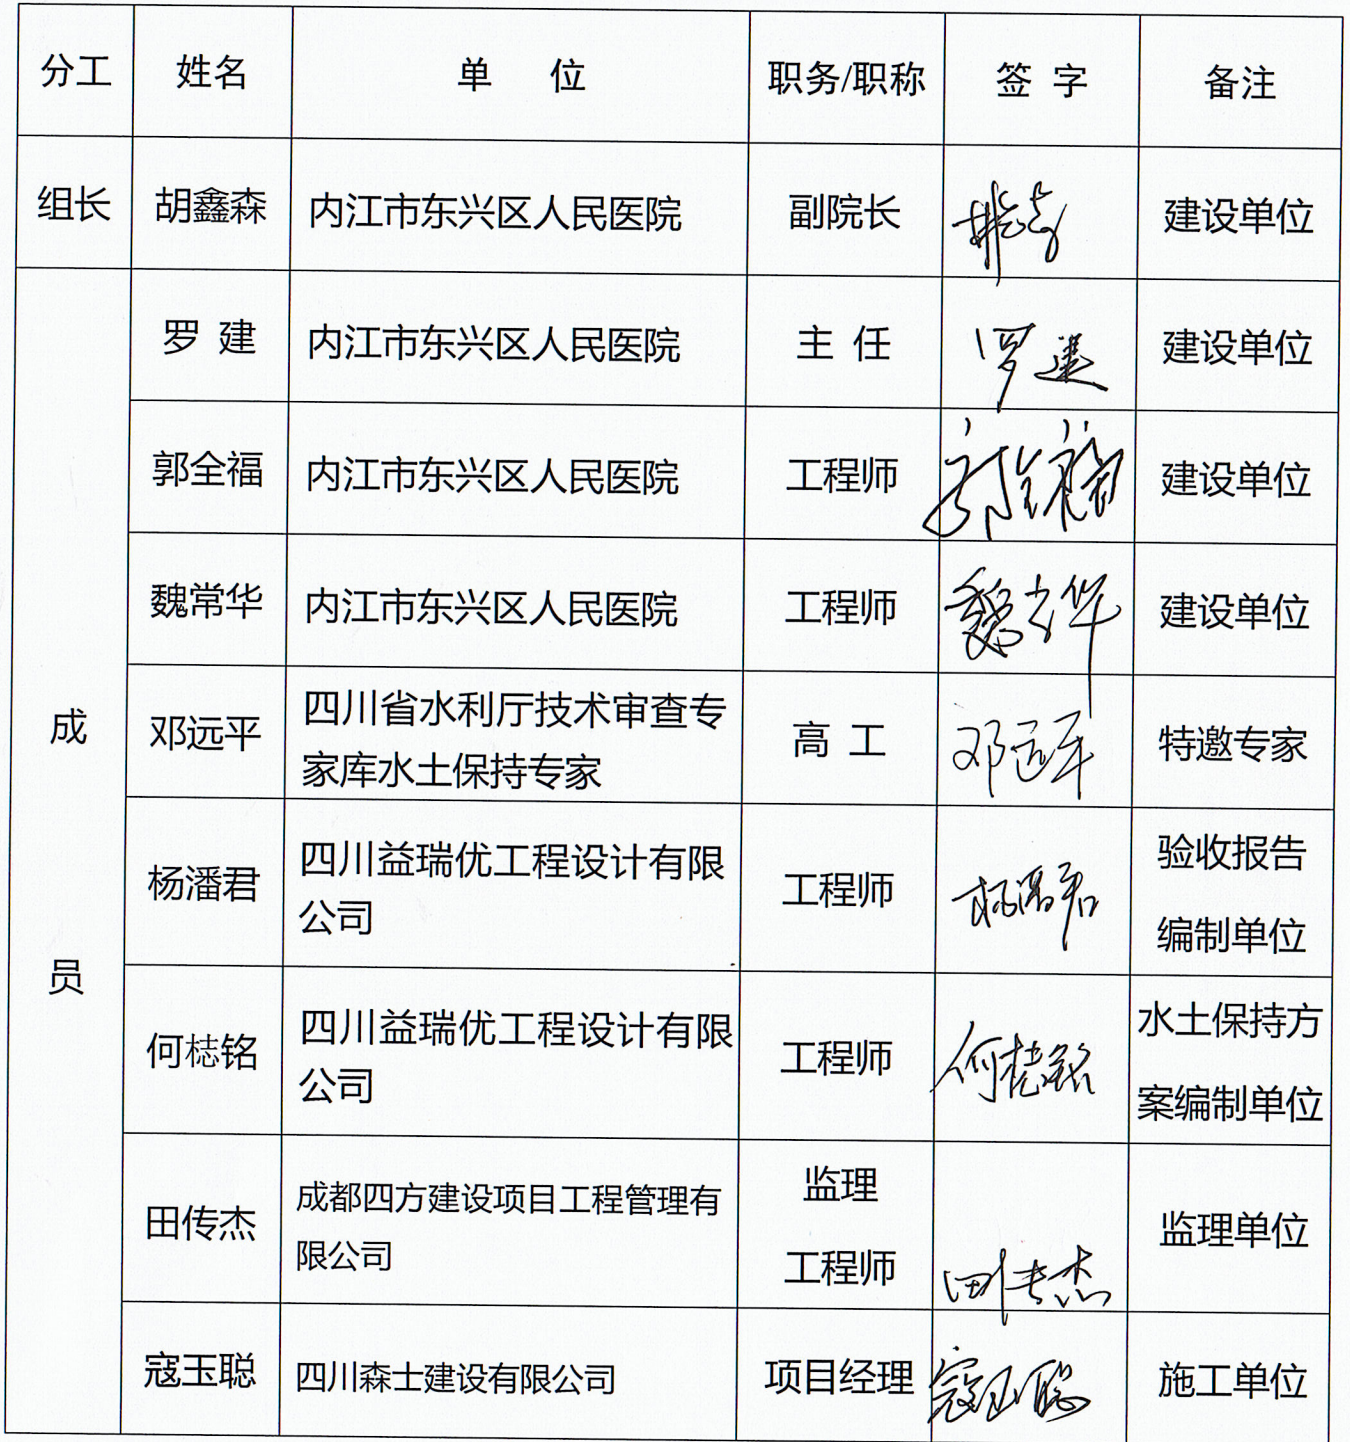 分工 姓名 单 位 职务/职称 签 字 备注
组长 胡鑫森 内江市东兴区人民医院 副院长 建设单位
罗 建 内江市东兴区人民医院 主 任 罗建 建设单位
郭全福 内江市东兴区人民医院 工程师 郭全福 建设单位
魏常华 内江市东兴区人民医院 工程师 魏常华 建设单位
成
员
邓远平 四川省水利厅技术审查专
家库水土保持专家
高 工 邓远平 特邀专家
杨潘君 四川益瑞优工程设计有限
公司
工程师 杨潘君 验收报告
编制单位
何梽铭 四川益瑞优工程设计有限
公司
工程师 何梽铭 水土保持方
案编制单位
田传杰 成都四方建设项目工程管理有
限公司
监理
工程师
田传杰 监理单位
寇玉聪 四川森士建设有限公司 项目经理 寇玉聪 施工单位